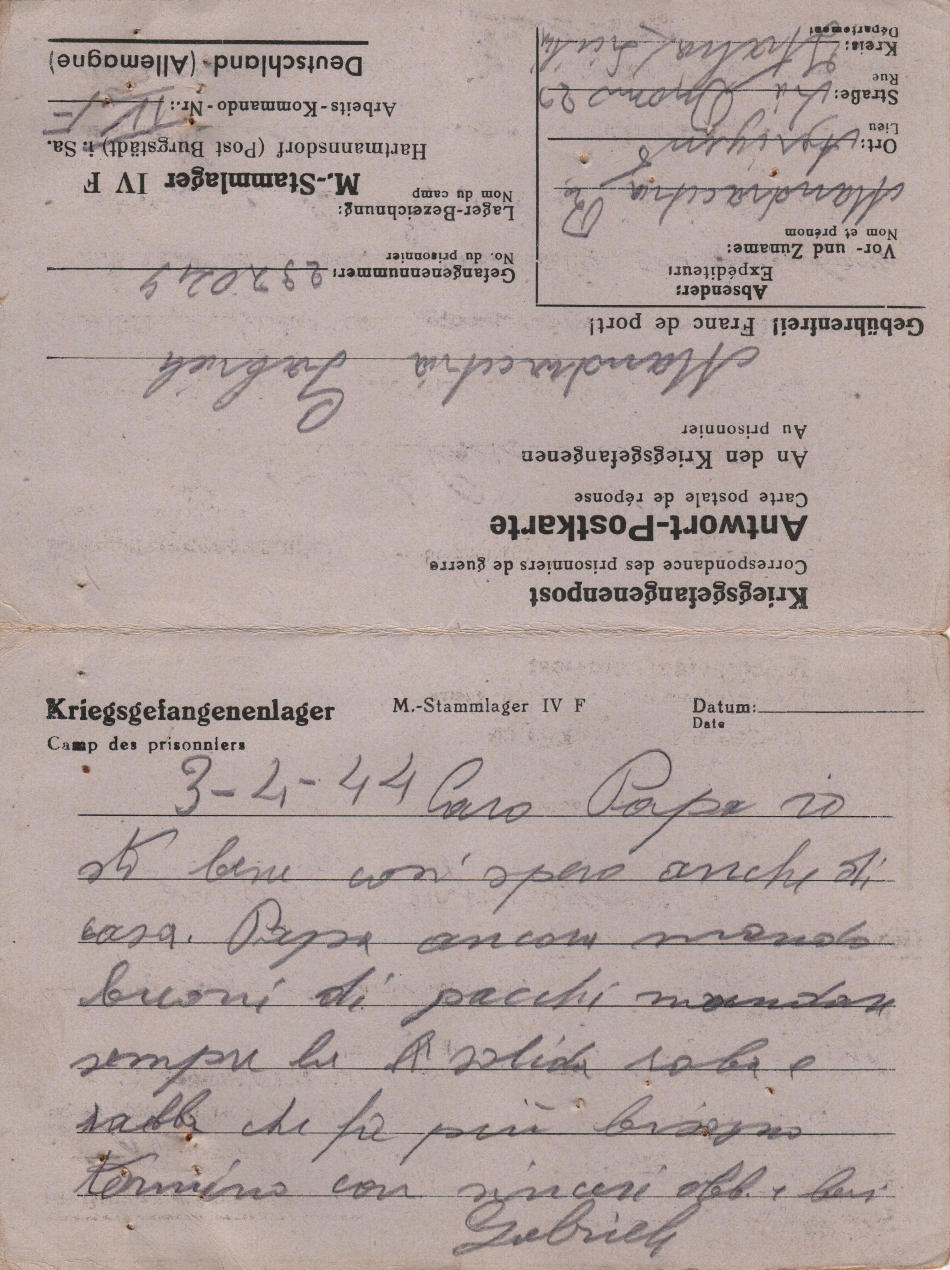 Kriegsgefangenenpost
Correspondance des prisonniers de guerre
Antwort-Postkarte
Carte postale de réponse
An den Kriegsgefangenen
Au prisonnier
Gebührenfrei! Franc de port!
Absender:
Expéditeur:
Vor- und Zuname:
Nom et prénom
Ort:
Lieu
Straße: 29
Rue
Kreis:
Département
Gefangenennummer: 237029
No. du prisonnier
Lager-Bezeichnung:
Nom du camp
M.-Stammlager IV F
Hartmannsdorf (Post Burgstädt) i. Sa.
Arbeits-Kommando-Nr.: IV F
Deutschland (Allemagne)
Kriegsgefangenenlager M.-Stammlager IV F Datum:
Camp des prisonniers Date
3-4-44 Caro Papa io
sto bene così spero anche di
casa. Papa ancora mando
buoni di pacchi mandare
sempre la solida roba e
robba che fa più bisogno
Termino con sinceri abb. e baci
Gabriele